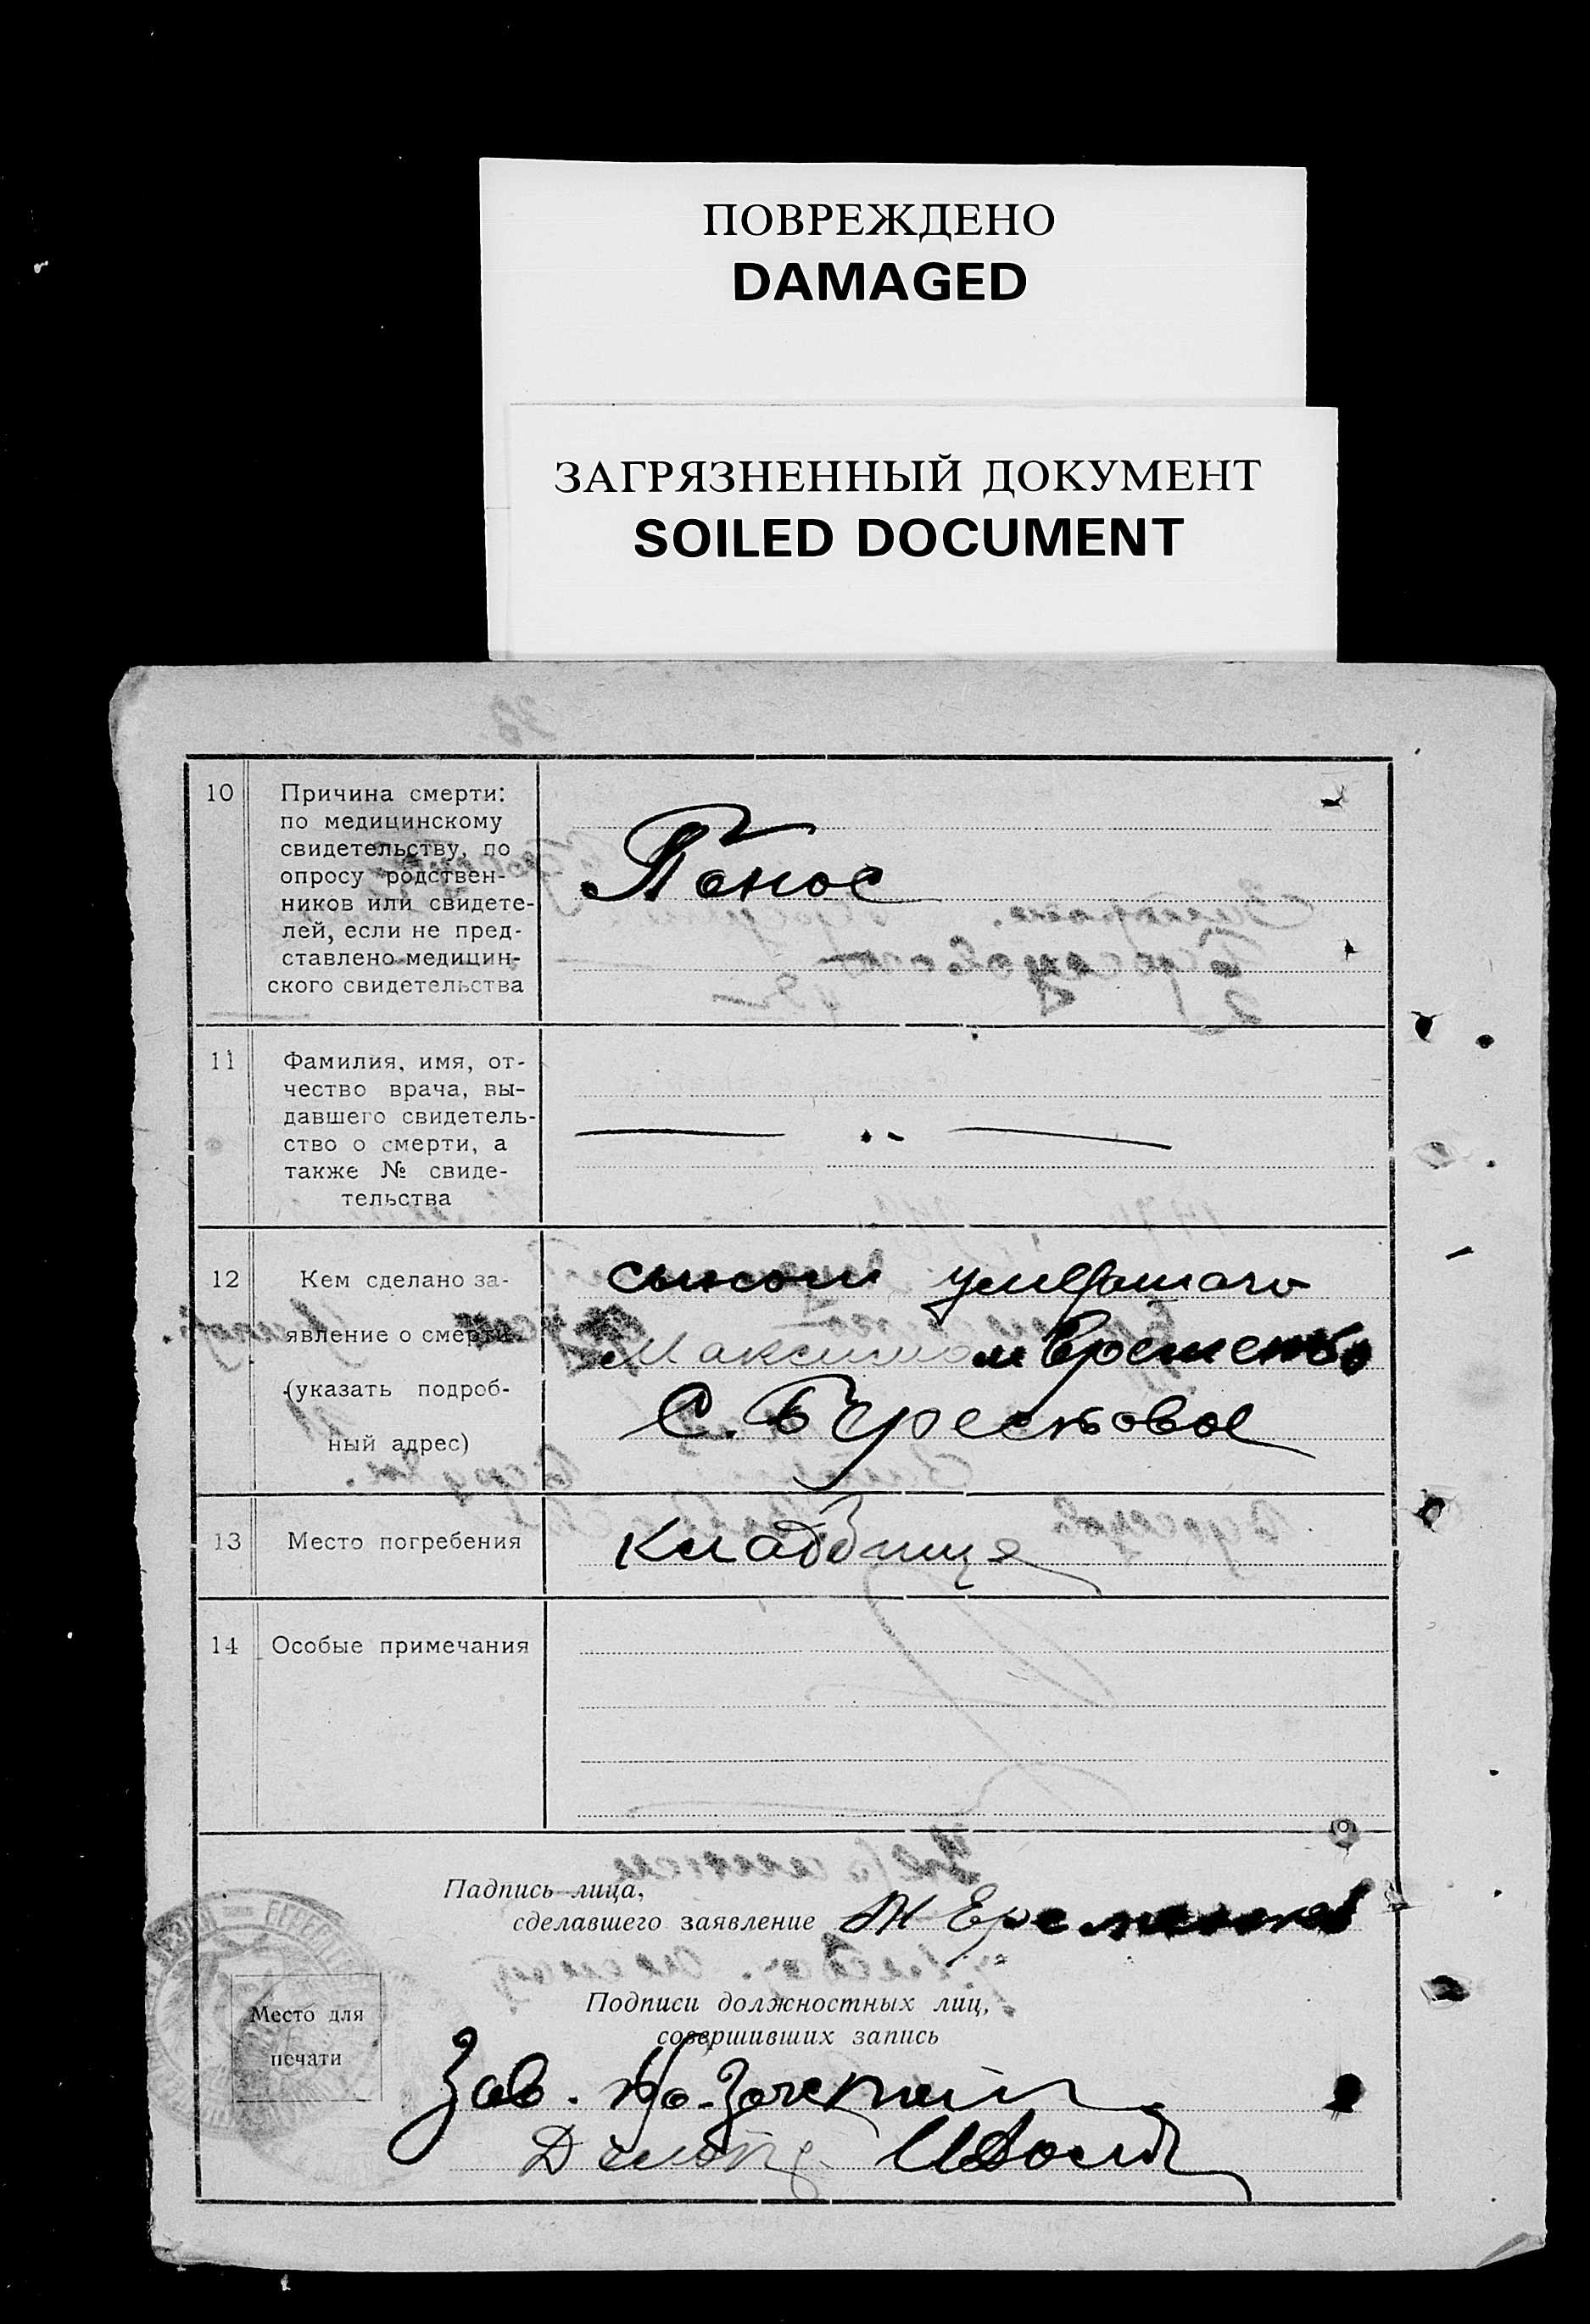 ПОВРЕЖДЕНО
DAMAGED
ЗАГРЯЗНЕННЫЙ ДОКУМЕНТ
SOILED DOCUMENT
10
Причина смерти:
по медицинскому
свидетельству, по
опросу родствен-
ников или свидете-
лей, если не пред-
ставлено медицин-
ского свидетельства
Понос
11
Фамилия, имя, от-
чество врача, вы-
давшего свидетель-
ство о смерти, а
также № свиде-
тельства
12
Кем сделано за-
явление о смерти
(указать подроб-
ный адрес)
сыном умершаго
Максимом Еременко
С. Берестовое
13
Место погребения
Кладбище
14
Особые примечания
Падпись лица,
сделавшего заявление
Место для
печати
Подписи должностных лиц,
совершивших запись
Зав.